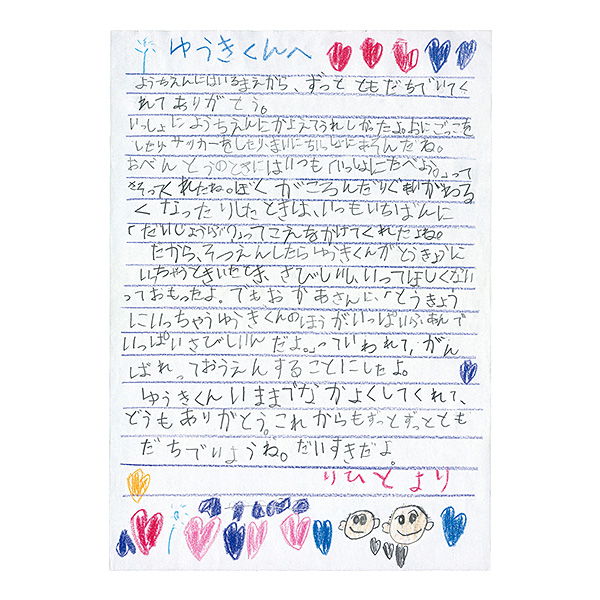 ゆうきくんへ
ようちえんにはいるまえから、ずっと ともだちでいてく
れてありがとう。
いっしょにようちえんにかよえてうれしかったよ。おにごっこを
したりサッカーをしたりまいにちいっしょにあそんだね。
おべんとうのときにはいつも「いっしょにたべよう。」って
さそってくれたね。ぼくがころんだりぐあいがわる
くなったりしたときは、いつもいちばんに
「だいじょうぶ?」ってこえをかけてくれたよね。
だから、そつえんしたらゆうきくんがとうきょうに
いっちゃうときいたとき、さびしいし、いってほしくない
っておもったよ。でもおかあさんに、「とうきょう
にいっちゃうゆうきくんのほうがいっぱいふあんで
いっぱいさびしいんだよ。」っていわれて、がん
ばれっておうえんすることにしたよ。
ゆうきくんいままでなかよくしてくれて、
どうもありがとう。これからもずっとずっととも
だちでいようね。だいすきだよ。
りひとより